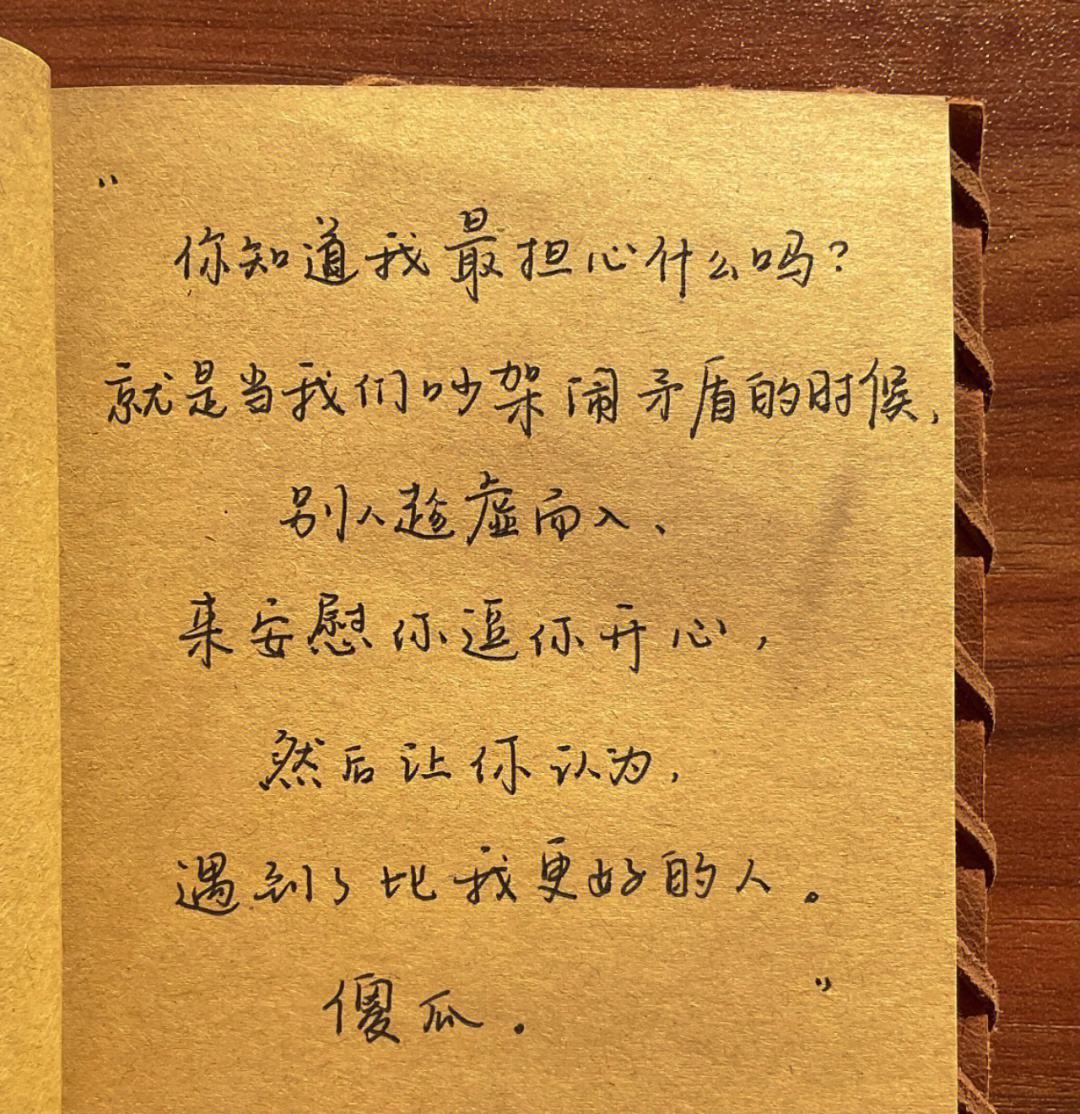 “
你知道我最担心什么吗？
就是当我们吵架闹矛盾的时候，
别人趁虚而入、
来安慰你逗你开心，
然后让你认为，
遇到了比我更好的人。
傻瓜。”